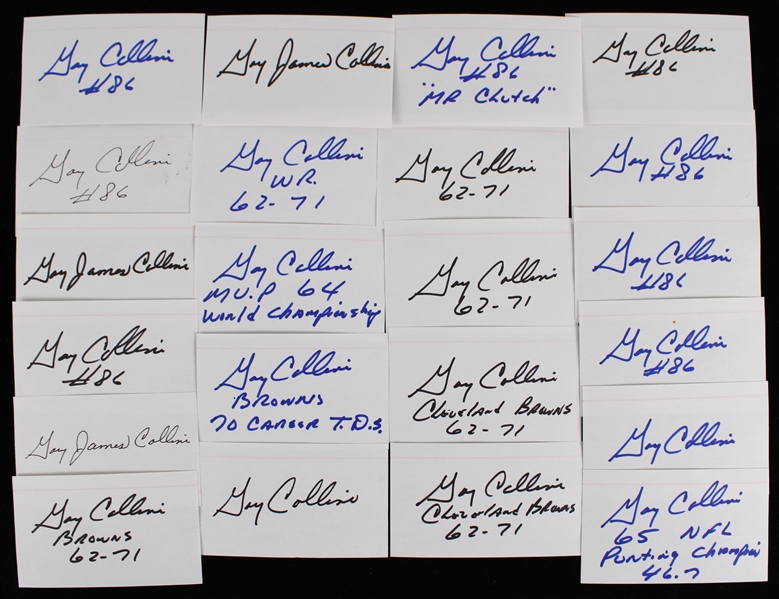 Gary Collins
#86
Gary Collins
#86
Gary James Collins
Gary Collins
#86
Gary James Collins
Gary Collins
BROWNS
62-71
Gary James Collins
Gary Collins
WR.
62-71
Gary Collins
M.V.P 64
World Championship
Gary Collins
BROWNS
70 CAREER T.D.s.
Gary Collins
Gary Collins
#86
"MR Clutch"
Gary Collins
62-71
Gary Collins
62-71
Gary Collins
Cleveland Browns
62-71
Gary Collins
Cleveland Browns
62-71
Gary Collins
#86
Gary Collins
#86
Gary Collins
#86
Gary Collins
#86
Gary Collins
Gary Collins
65 NFL
Punting Champion
46.7